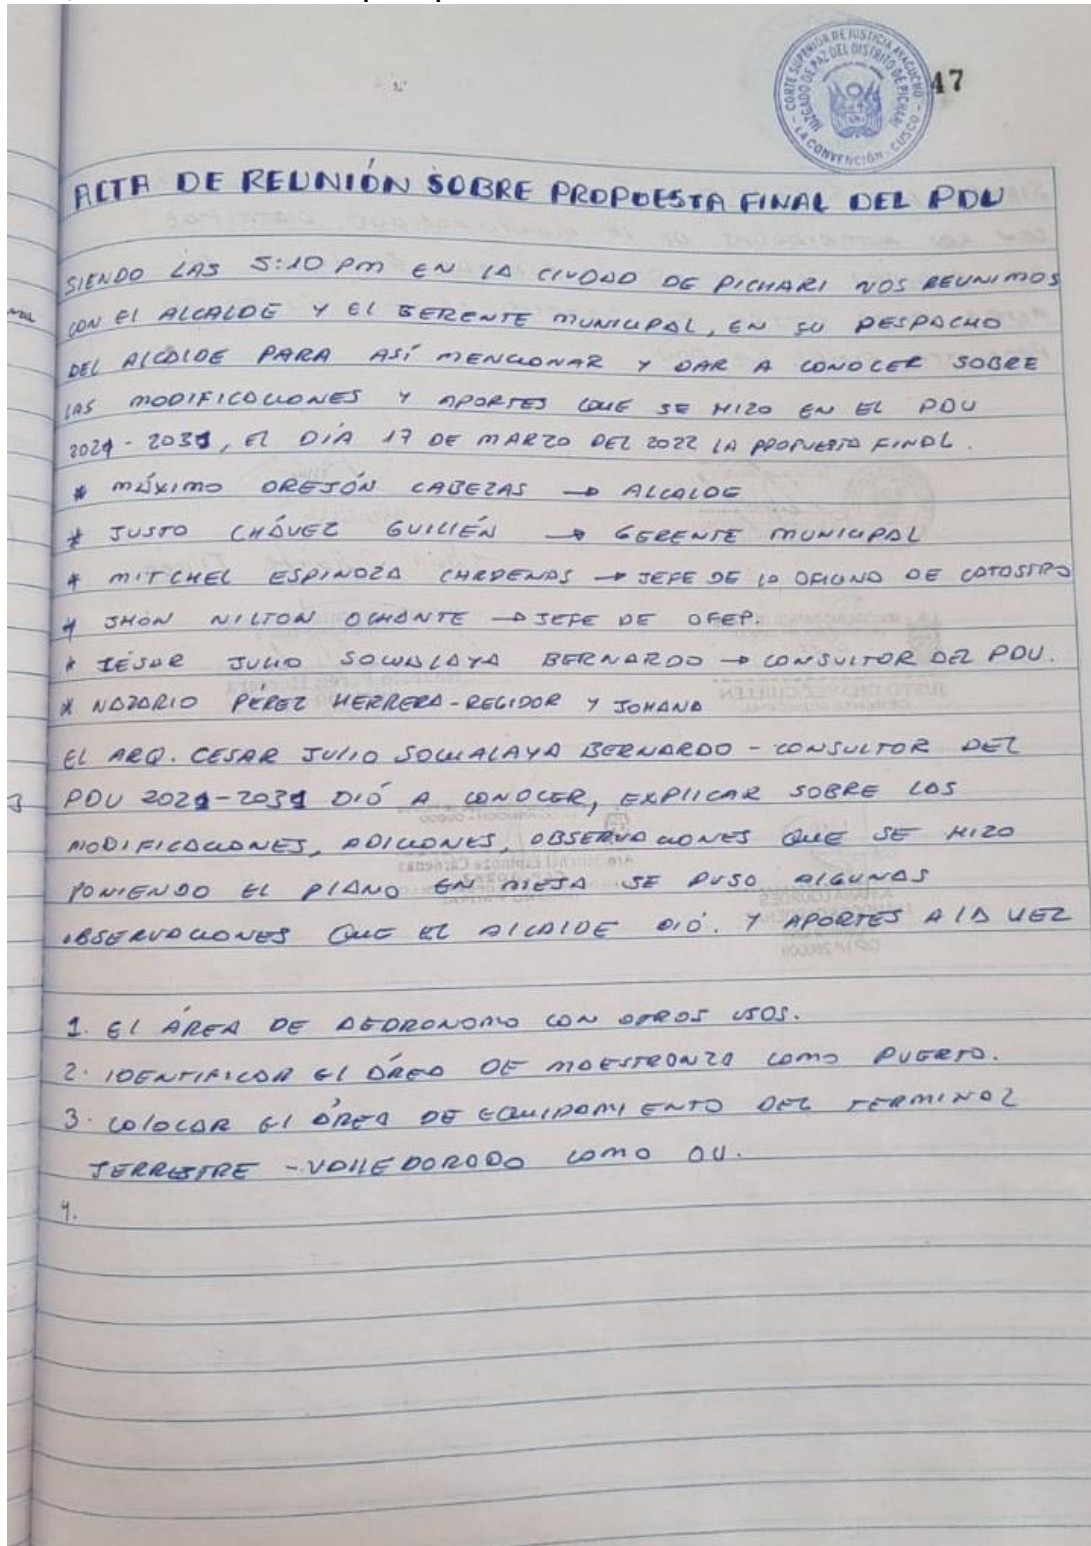 CORTE SUPERIOR DE JUSTICIA AYACUCHO
JUZGADO DE PAZ DEL DISTRITO DE PICHARI
- LA CONVENCIÓN - CUSCO -
47
ACTA DE REUNIÓN SOBRE PROPUESTA FINAL DEL PDU
SIENDO LAS 5:10 PM EN LA CIUDAD DE PICHARI NOS REUNIMOS
CON EL ALCALDE Y EL GERENTE MUNICIPAL, EN SU DESPACHO
DEL ALCALDE PARA ASÍ MENCIONAR Y DAR A CONOCER SOBRE
LAS MODIFICACIONES Y APORTES QUE SE HIZO EN EL PDU
2021-2031, EL DÍA 17 DE MARZO DEL 2022 LA PROPUESTA FINAL.
* MÁXIMO OREJÓN CABEZAS → ALCALDE
* JUSTO CHÁVEZ GUILLÉN → GERENTE MUNICIPAL
* MITCHEL ESPINOZA CARDENAS → JEFE DE LA OFICINA DE CATASTRO
* JHÓN NILTON OCHANTE → JEFE DE OFEP.
* CÉSAR JULIO SOCUALAYA BERNARDO → CONSULTOR DEL PDU.
* NAZARIO PÉREZ HERRERA - REGIDOR Y JOHANA
EL ARQ. CESAR JULIO SOCUALAYA BERNARDO - CONSULTOR DEL
PDU 2021-2031 DIÓ A CONOCER, EXPLICAR SOBRE LAS
MODIFICACIONES, ADICIONES, OBSERVACIONES QUE SE HIZO
PONIENDO EL PLANO EN MESA SE PUSO ALGUNAS
OBSERVACIONES QUE EL ALCALDE DIÓ. Y APORTES A LA VEZ
1. EL ÁREA DE AEDRONOMO CON OTROS USOS.
2. IDENTIFICAR EL ÁREA DE MAESTRANZA COMO PUERTO.
3. COLOCAR EL ÁREA DE EQUIPAMIENTO DEL TERMINAL
TERRESTRE - VALLE DORADO COMO OU.
4.